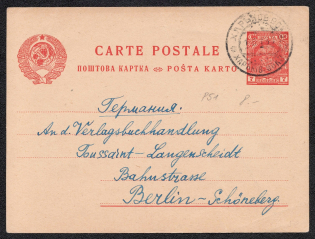 CARTE POSTALE
ПОШТОВА КАРТКА POŜTA KARTO
Германия.
An d. Verlagsbuchhandlung
Toussaint-Langenscheidt
Bahnstrasse
Berlin-Schöneberg.